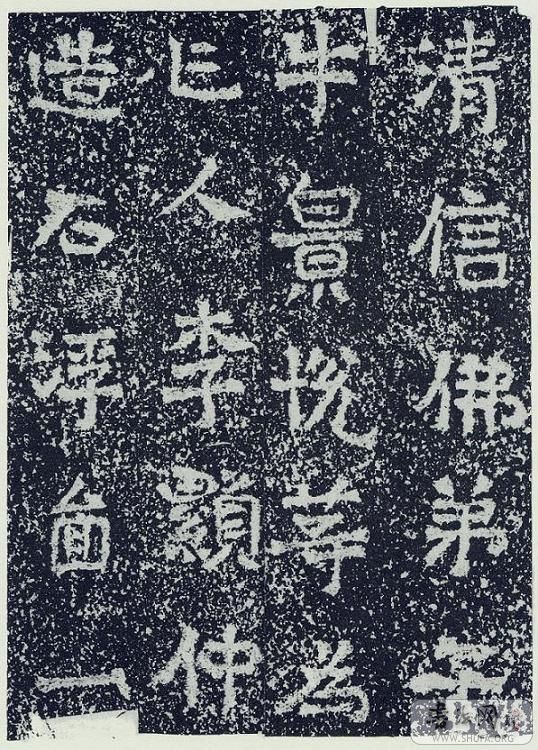 清信佛弟子
牛景悅等為
亡人李顯仲
造石浮啚一
WWW.SHUFA.ORG